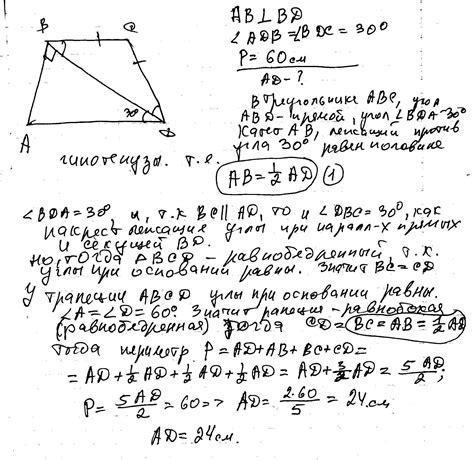 B C
A D
30°
AB⊥BD
∠ADB = ∠BDC = 30°
P = 60 см
AD - ?
В треугольнике ABC, угол
ABD - прямой, угол ∠BDA = 30°
Катет AB, лежащий против
угла 30° равен половине
гипотенузы. т.е. AB = 1/2 AD (1)
∠BDA = 30°, и, т.к BC || AD, то и ∠DBC = 30°, как
накрест лежащие углы при паралл-х прямых
и секущей BD.
Но, тогда △BCD - равнобедренный, т.к.
углы при основании равны. Значит BC = CD
У трапеции ABCD углы при основании равны.
∠A = ∠D = 60°. Значит трапеция - равнобокая
(равнобедренная) тогда CD = BC = AB = 1/2 AD
Тогда периметр P = AD + AB + BC + CD =
= AD + 1/2 AD + 1/2 AD + 1/2 AD = AD + 3/2 AD = 5AD/2;
P = 5AD/2 = 60 => AD = 2·60/5 = 24 см
AD = 24 см.